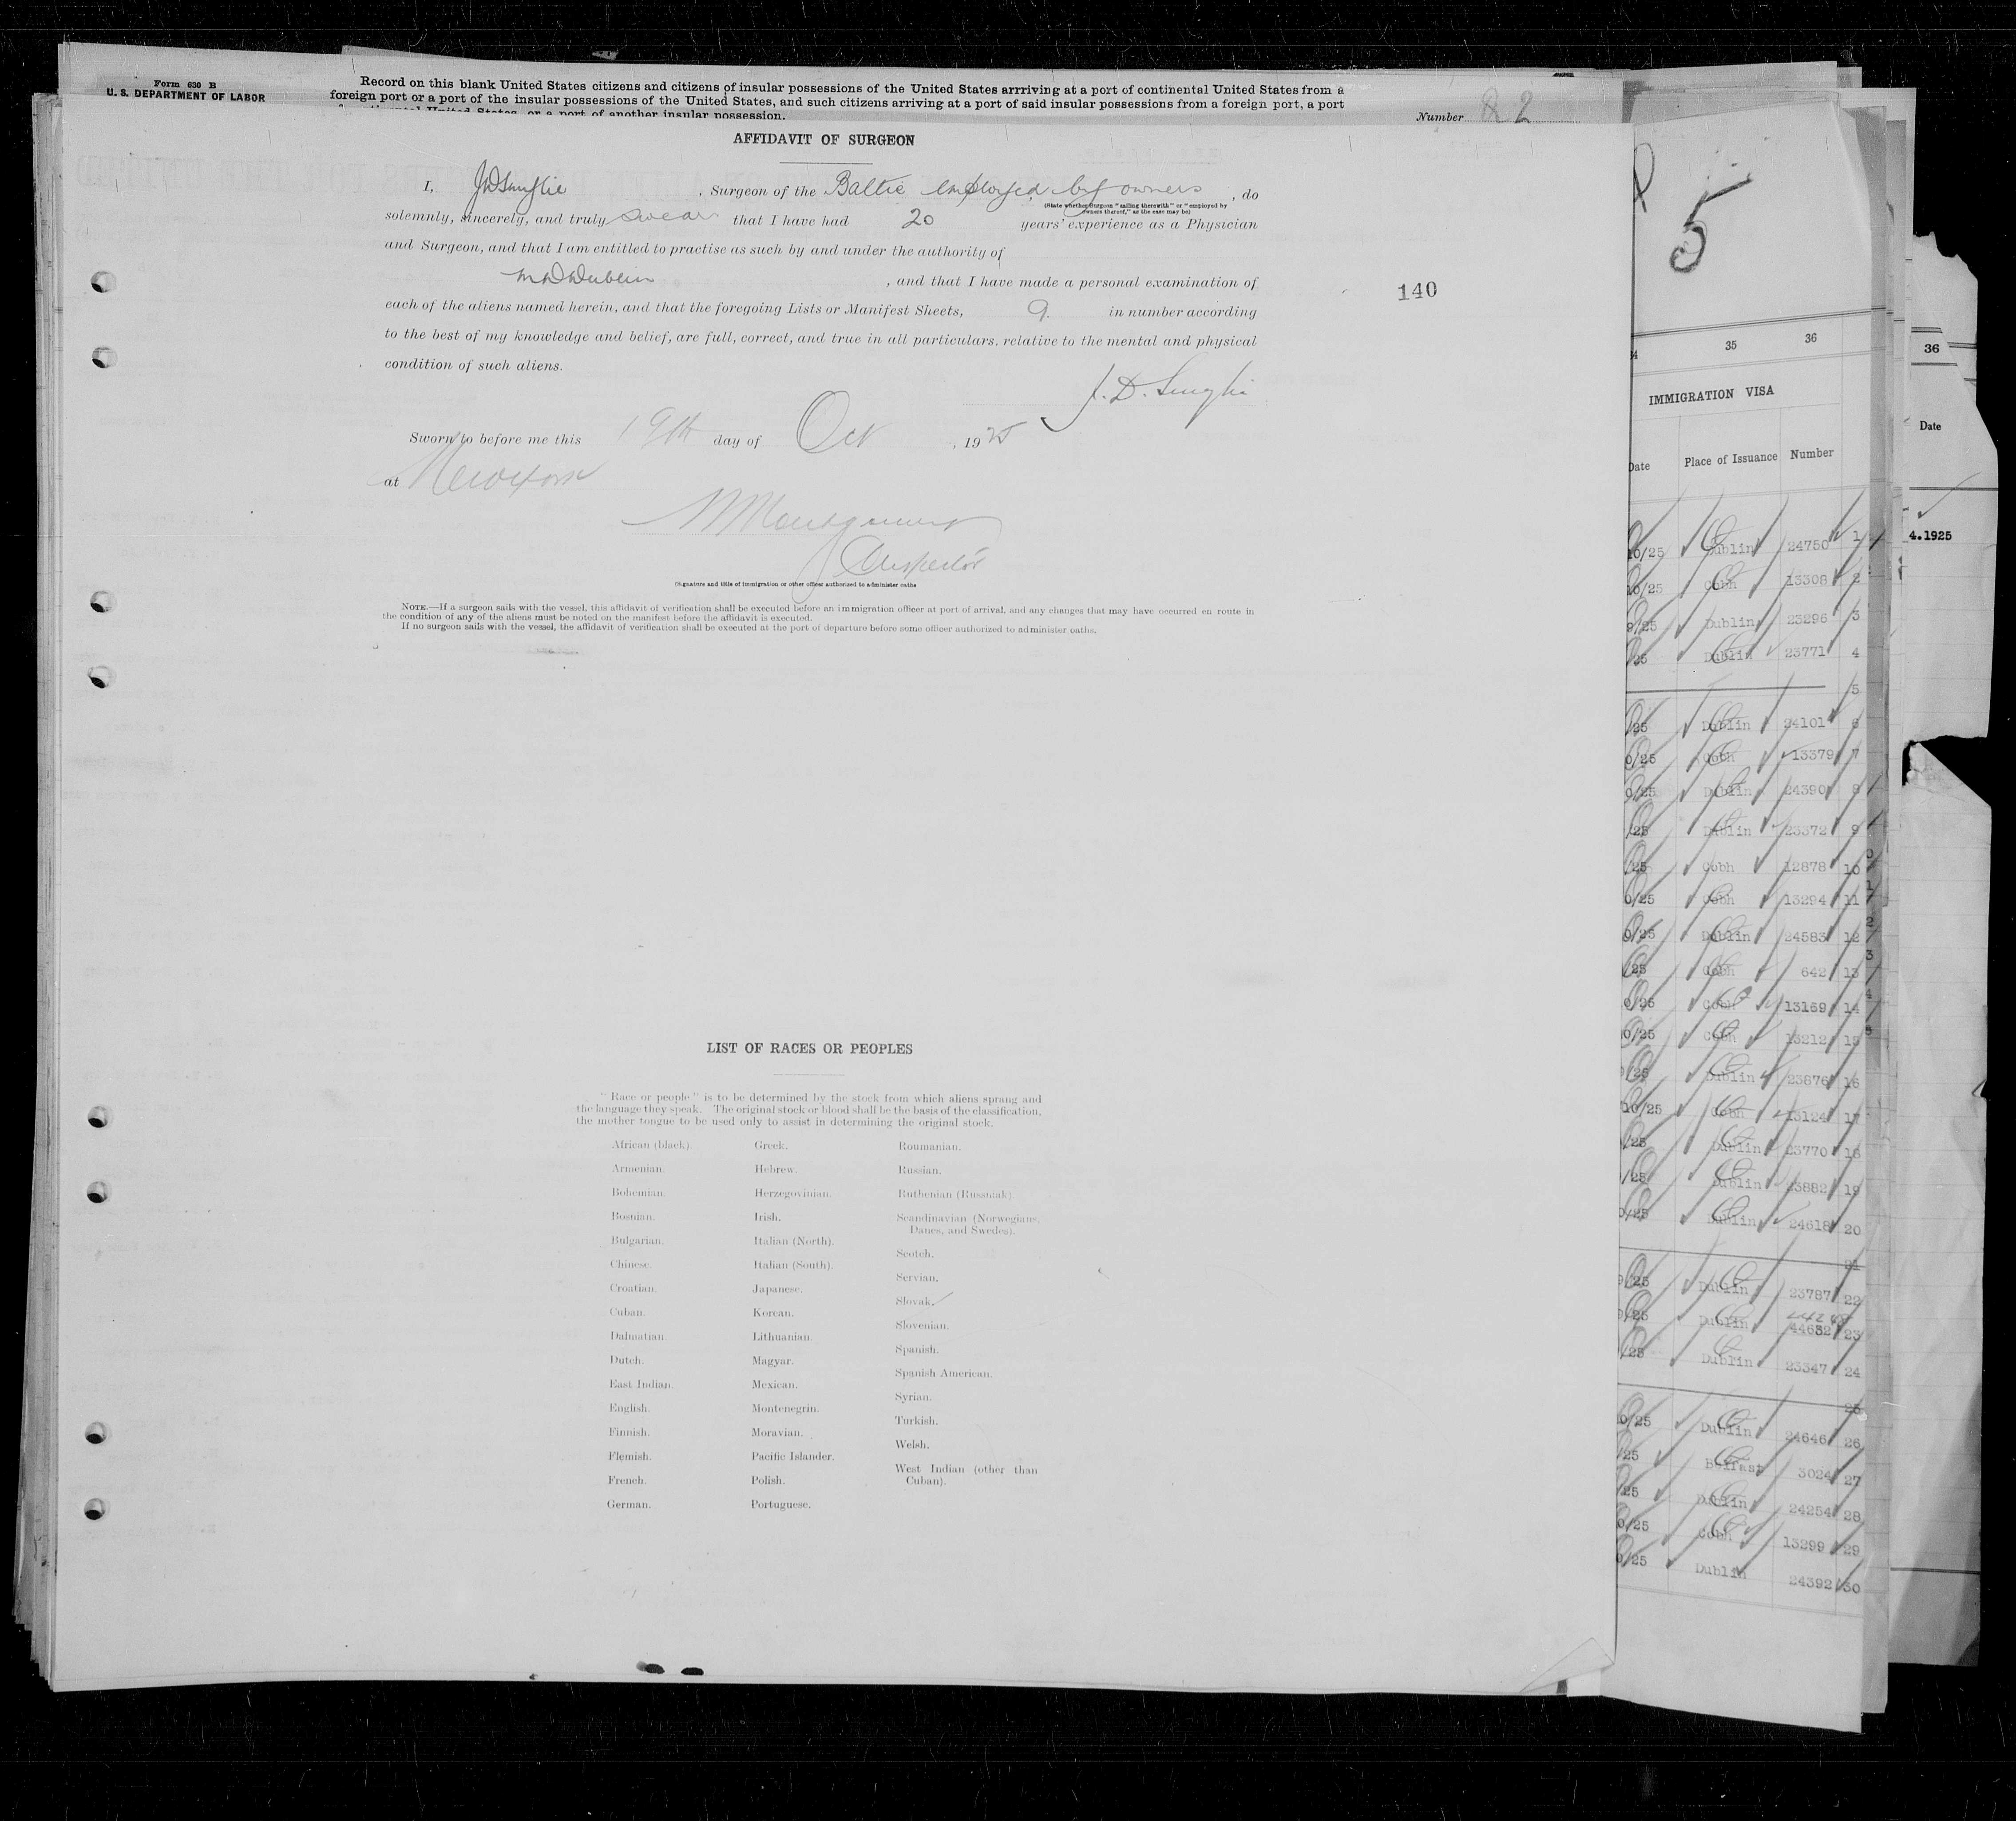 Form 630 B
U. S. DEPARTMENT OF LABOR
Record on this blank United States citizens and citizens of insular possessions of the United States arrriving at a port of continental United States from a
foreign port or a port of the insular possessions of the United States, and such citizens arriving at a port of said insular possessions from a foreign port, a port
or a port of another insular possession.
Number
AFFIDAVIT OF SURGEON
I, , Surgeon of the Baltic employed by owners , do
(State whether Surgeon "sailing therewith" or "employed by
owners thereof," as the case may be)
solemnly, sincerely, and truly swear that I have had 20 years' experience as a Physician
and Surgeon, and that I am entitled to practise as such by and under the authority of
MD Dublin , and that I have made a personal examination of
each of the aliens named herein, and that the foregoing Lists or Manifest Sheets, 9. in number according
to the best of my knowledge and belief, are full, correct, and true in all particulars, relative to the mental and physical
condition of such aliens.
140
J. D.
Sworn to before me this 19th day of Oct , 1925
at New York
Montgomery
Inspector
(Signature and title of immigration or other officer authorized to administer oaths
NOTE.—If a surgeon sails with the vessel, this affidavit of verification shall be executed before an immigration officer at port of arrival, and any changes that may have occurred en route in
the condition of any of the aliens must be noted on the manifest before the affidavit is executed.
If no surgeon sails with the vessel, the affidavit of verification shall be executed at the port of departure before some officer authorized to administer oaths.
LIST OF RACES OR PEOPLES
"Race or people" is to be determined by the stock from which aliens sprang and
the language they speak. The original stock or blood shall be the basis of the classification,
the mother tongue to be used only to assist in determining the original stock.
African (black).
Armenian.
Bohemian.
Bosnian.
Bulgarian.
Chinese.
Croatian.
Cuban.
Dalmatian.
Dutch.
East Indian.
English.
Finnish.
Flemish.
French.
German.
Greek.
Hebrew.
Herzegovinian.
Irish.
Italian (North).
Italian (South).
Japanese.
Korean.
Lithuanian.
Magyar.
Mexican.
Montenegrin.
Moravian.
Pacific Islander.
Polish.
Portuguese.
Roumanian.
Russian.
Ruthenian (Russniak)
Scandinavian (Norwegians,
Danes, and Swedes).
Scotch.
Servian.
Slovak.
Slovenian.
Spanish.
Spanish American.
Syrian.
Turkish.
Welsh.
West Indian (other than
Cuban).
5
35 36
IMMIGRATION VISA
Date Place of Issuance Number
10/25 Dublin 24750 1
10/25 Cobh 13308 2
9/25 Dublin 23296 3
25 Dublin 23771 4
5
25 Dublin 24101 6
0/25 Cobh 13379 7
0/25 Dublin 24390 8
/25 Dublin 23372 9
25 Cobh 12878 10
0/25 Cobh 13294 11
0/25 Dublin 24583 12
25 Cobh 642 13
0/25 Cobh 13159 14
0/25 Cobh 13212 15
/25 Dublin 23876 16
10/25 Cobh 13124 17
/25 Dublin 23770 18
/25 Dublin 23882 19
0/25 Dublin 24618 20
21
9/25 Dublin 23787 22
9/25 Dublin 44632 23
/25 Dublin 23347 24
25
0/25 Dublin 24646 26
25 Belfast 3024 27
25 Dublin 24254 28
0/25 Cobh 13299 29
0/25 Dublin 24392 30
36
Date
4.1925